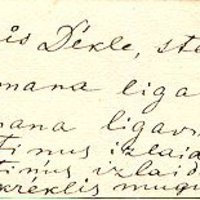 is Dēkle, sta
mana liga
mana ligavi
tinus izlaid
tinus izlaid
krēklis mugu